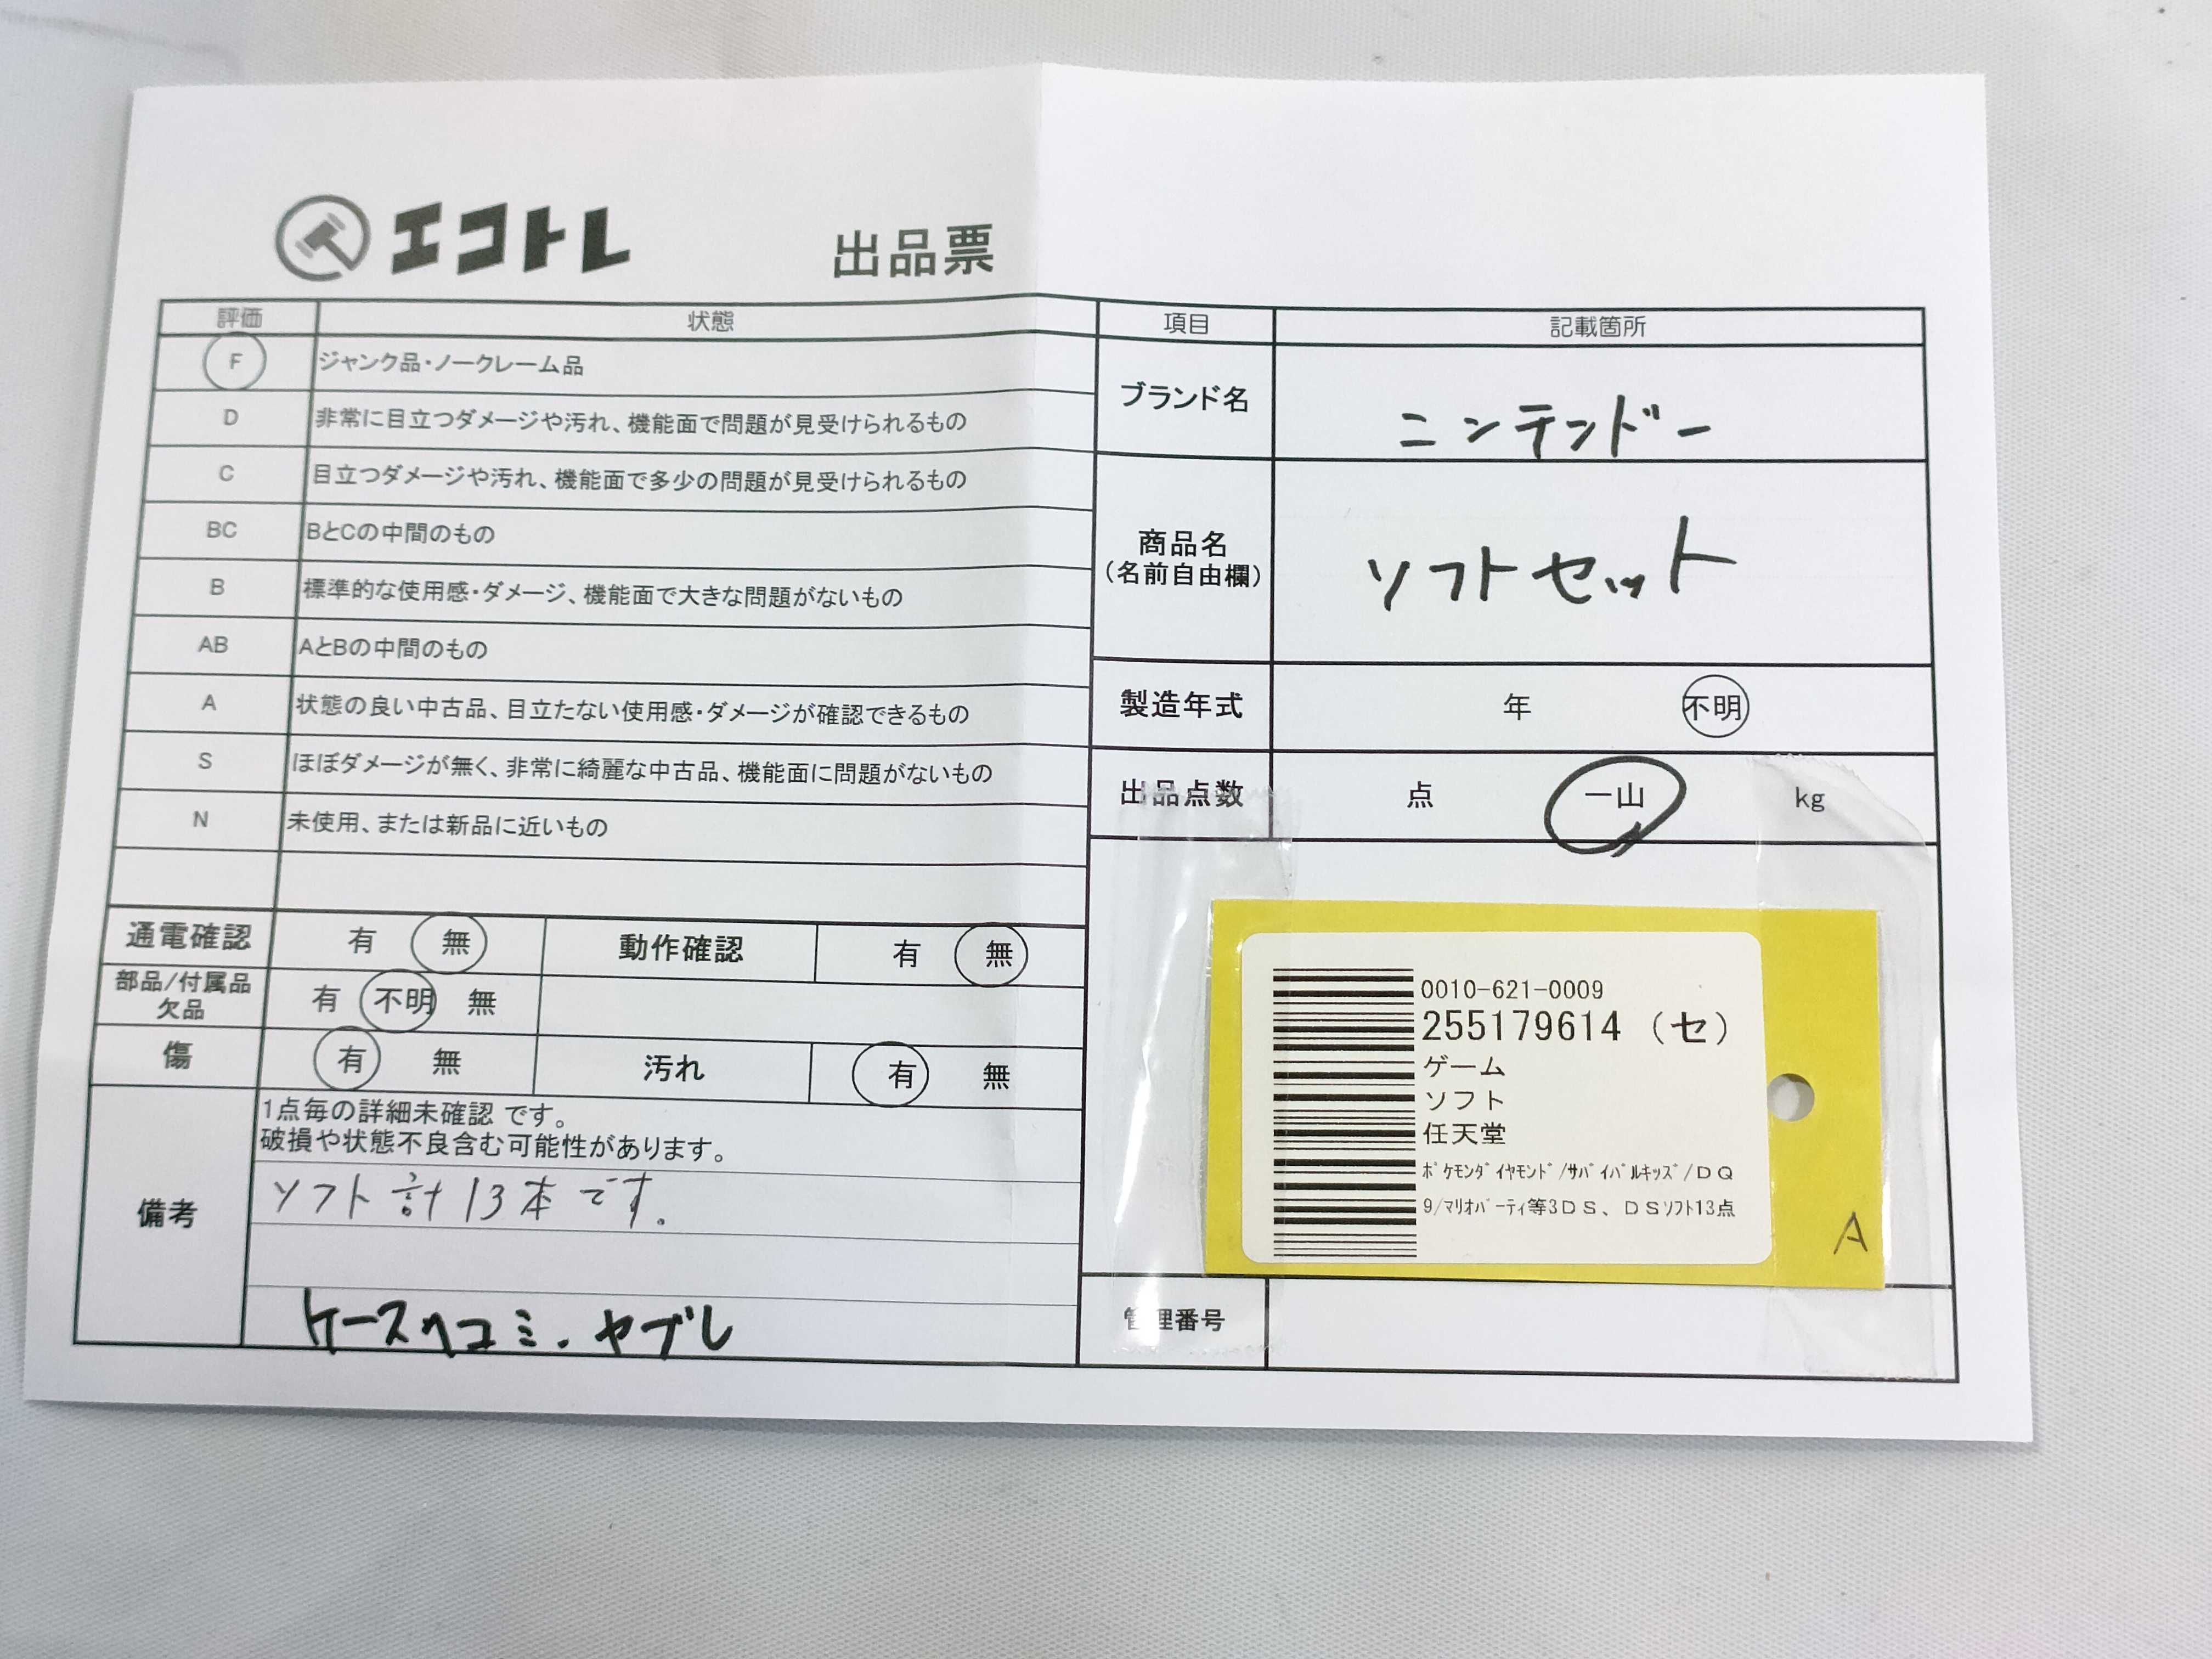 エコトレ 出品票
評価 状態
F ジャンク品・ノークレーム品
D 非常に目立つダメージや汚れ、機能面で問題が見受けられるもの
C 目立つダメージや汚れ、機能面で多少の問題が見受けられるもの
BC BとCの中間のもの
B 標準的な使用感・ダメージ、機能面で大きな問題がないもの
AB AとBの中間のもの
A 状態の良い中古品、目立たない使用感・ダメージが確認できるもの
S ほぼダメージが無く、非常に綺麗な中古品、機能面に問題がないもの
N 未使用、または新品に近いもの
通電確認 有 無 動作確認 有 無
部品/付属品
欠品 有 不明 無
傷 有 無 汚れ 有 無
備考
1点毎の詳細未確認 です。
破損や状態不良含む可能性があります。
ソフト計13本です。
ケースヘコミ.ヤブレ
項目 記載箇所
ブランド名 ニンテンドー
商品名
(名前自由欄) ソフトセット
製造年式 年 不明
出品点数 点 一山 kg
0010-621-0009
255179614 (セ)
ゲーム
ソフト
任天堂
ﾎﾟｹﾓﾝﾀﾞｲﾔﾓﾝﾄﾞ/ｻﾊﾞｲﾊﾞﾙｷｯｽﾞ/ＤＱ
9/ﾏﾘｵﾊﾟｰﾃｨ等3ＤＳ、ＤＳｿﾌﾄ13点
A
管理番号